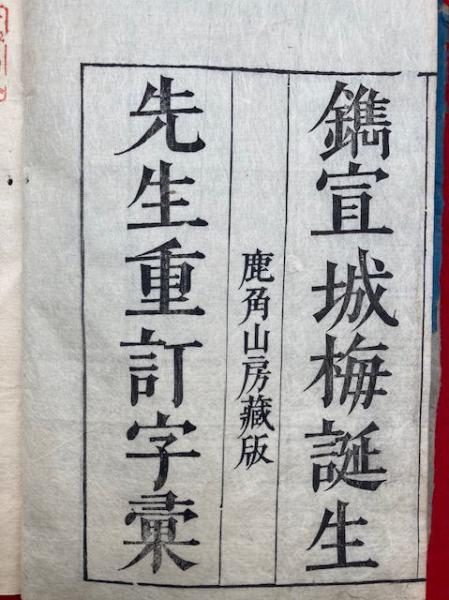 鐫宣城梅誕生
鹿角山房藏版
先生重訂字彙